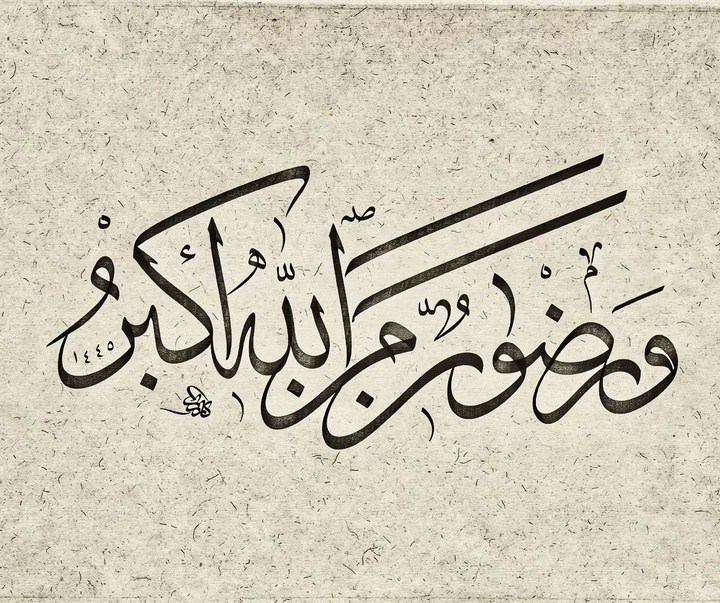 ورضوٰنٌ مّن ٱللّه أكبرُ
١٤٤٥